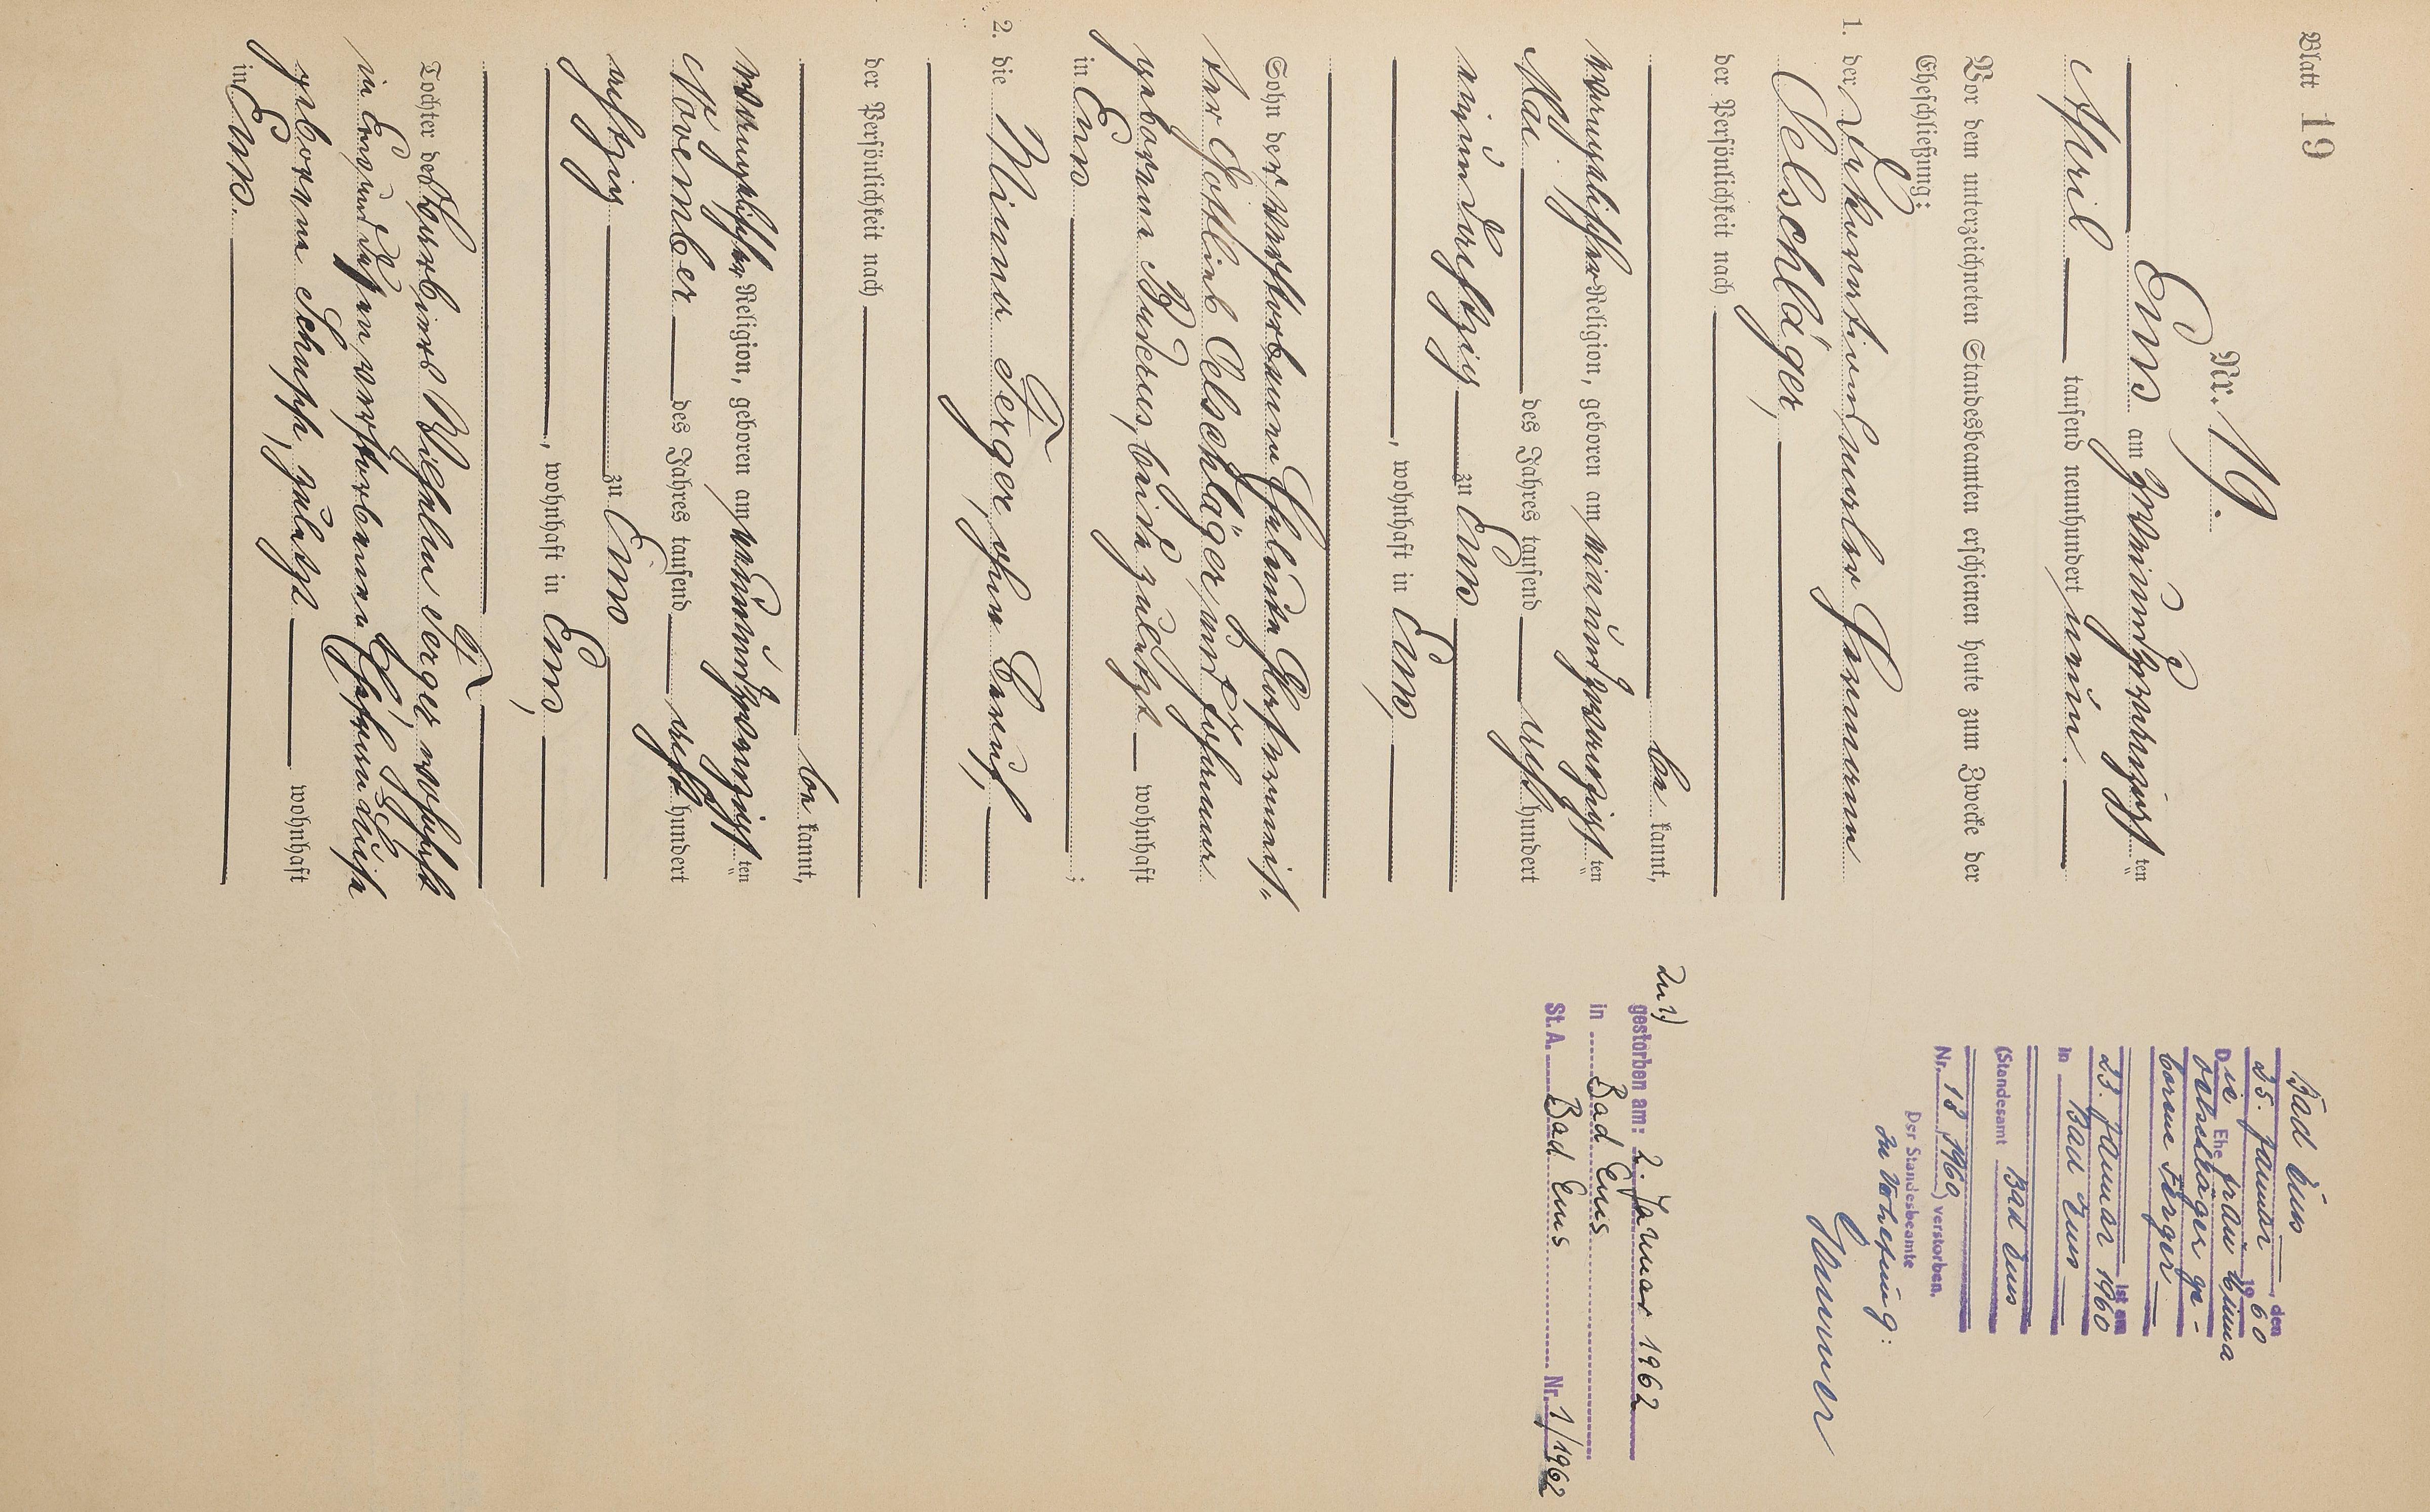 Blatt 19
Nr. 19.
Ems am zweiundzwanzigsten
April tausend neunhundert neun.
Vor dem unterzeichneten Standesbeamten erschienen heute zum Zwecke der
Eheschließung:
1. der Dekorationsmaler Hermann
Oelschläger,
der Persönlichkeit nach
be kannt,
evangelischer Religion, geboren am einundzwanzigsten
Mai des Jahres tausend acht hundert
einundachtzig zu Ems
, wohnhaft in Ems,
Sohn der verstorbenen Eheleute Glasermeis=
ter Gottlieb Oelschläger, und Johanna
geborene Buderus, beide zuletzt wohnhaft
in Ems ;
2. die Minna Ferger, ohne Beruf,
der Persönlichkeit nach
be kannt,
evangelischer Religion, geboren am
November des Jahres tausend acht hundert
achtzig zu Ems
, wohnhaft in Ems,
Tochter des Barbiers Wilhelm Ferger wohnhaft
in Ems und dessen verstorbenen Ehefrau Luise
geborene Schupp, zuletzt wohnhaft
in Ems.
Bad Ems, den
25. Januar 1960
Die Ehefrau Minna
Oelschläger ge-
borene Ferger
ist am
23. Januar 1960
in Bad Ems
(Standesamt Bad Ems
Nr. 18/1960) verstorben.
Der Standesbeamte
In Vertretung:
Zu 1)
gestorben am: 2. Januar 1962
in Bad Ems
St.A. Bad Ems Nr. 1/1962